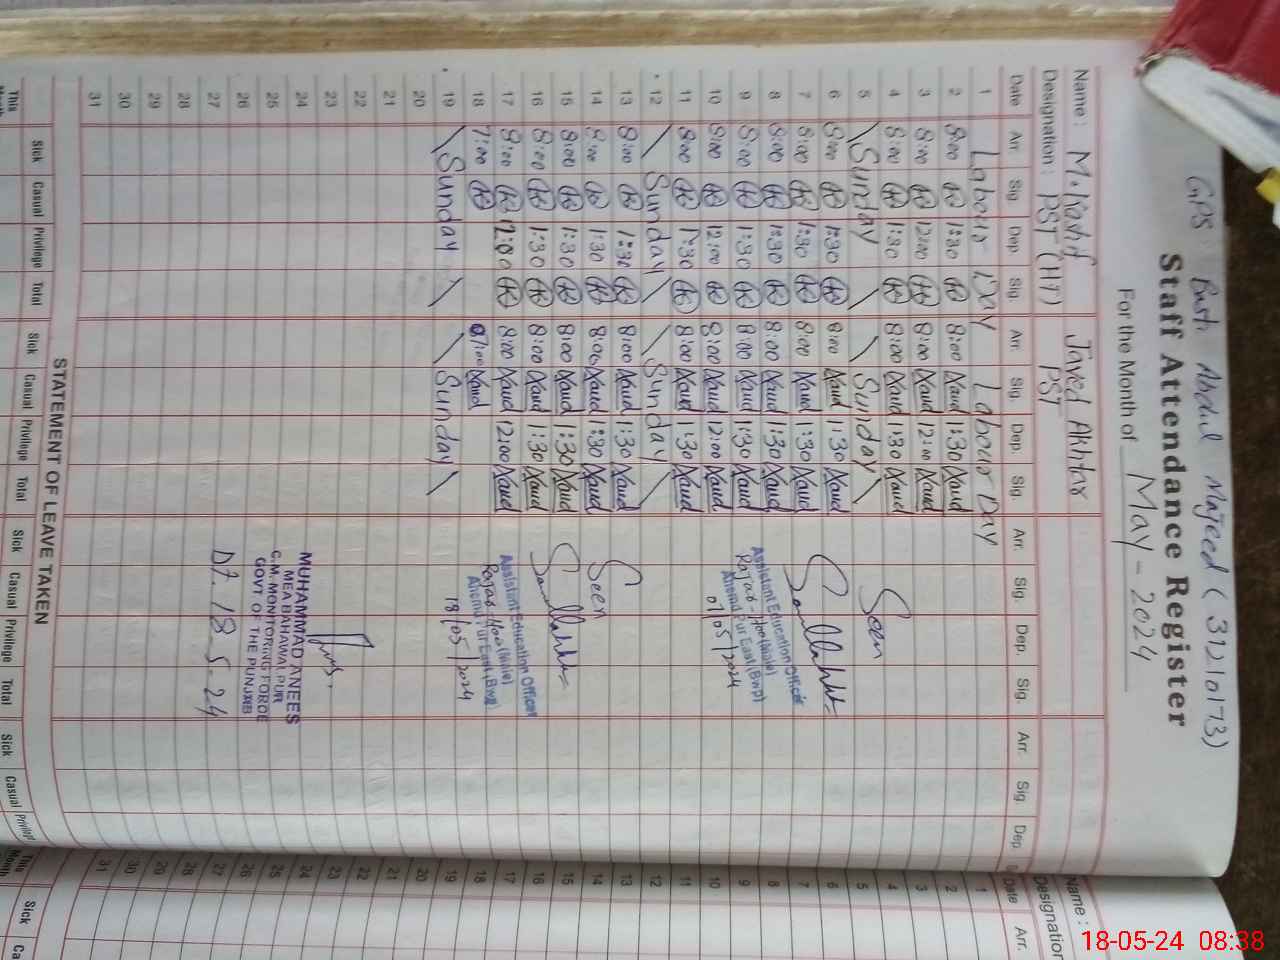 GPS Basti Abdul Majeed (31210173)
Staff Attendance Register
For the Month of May - 2024
Name : M. Kashif Javed Akhtar
Designation : PST (HT) PST
Date Arr. Sig. Dep. Sig. Arr. Sig. Dep. Sig. Arr. Sig. Dep. Sig. Arr. Sig. Dep.
1 Labour Day Labour Day
2 8:00 1:30 8:00 Javed 1:30 Javed
3 8:00 12:00 8:00 Javed 12:00 Javed
4 8:00 1:30 8:00 Javed 1:30 Javed
5 Sunday Sunday Seen
6 8:00 1:30 8:00 Javed 1:30 Javed
7 8:00 1:30 8:00 Javed 1:30 Javed
8 8:00 1:30 8:00 Javed 1:30 Javed
9 8:00 1:30 8:00 Javed 1:30 Javed
10 8:00 12:00 8:00 Javed 12:00 Javed
11 8:00 1:30 8:00 Javed 1:30 Javed
12 Sunday Sunday
13 8:00 1:30 8:00 Javed 1:30 Javed
14 8:00 1:30 8:00 Javed 1:30 Javed Seen
15 8:00 1:30 8:00 Javed 1:30 Javed
16 8:00 1:30 8:00 Javed 1:30 Javed
17 8:00 12:00 8:00 Javed 12:00 Javed
18 7:00 07:00 Javed
19 Sunday Sunday
20
21
22
23
24
25
26
27
28
29
30
31
Assistant Education Officer
(Male)
Ahemd Pur East (Bwp)
01/05/2024
Assistant Education Officer
(Male)
Ahemd Pur East, (Bwp)
18/05/2024
MUHAMMAD ANEES
MEA BAHAWALPUR
C.M. MONITORING FORCE
GOVT OF THE PUNJAB
Dt. 18-5-24
STATEMENT OF LEAVE TAKEN
Sick Casual Privilege Total Sick Casual Privilege Total Sick Casual Privilege Total Sick Casual
This
Name :
Designation
Date Arr.
1
2
3
4
5
6
7
8
9
10
11
12
13
14
15
16
17
18
19
20
21
22
23
24
25
26
27
28
29
30
31
Sick
18-05-24 08:38